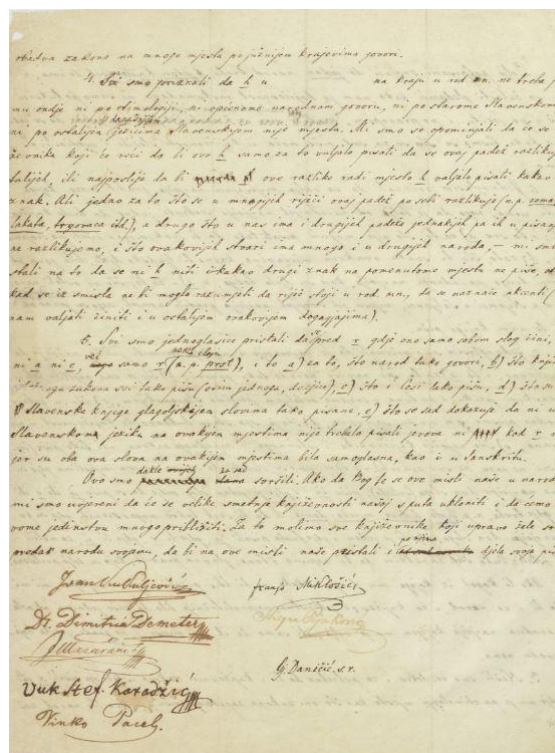 obadva zakona na mnogo mjesta po južnijem krajevima govori.
4. Svi smo priznali da h u na kraju u rod mn. ne treba
mu ondje ni po etimologiji, ni općenome narodnom govoru, ni po starome Slavenskom
ni po ostalijem jezicima Slavenskijem nije mjesta. Mi smo se opominjali da će se
ževnika koji će reći da bi ovo h samo za to valjalo pisati da se ovaj padež razlikuj
talijeh, ili najposlije da bi ove razlike radi mjesto h valjalo pisati kakav
znak. Ali jedno za to što se u mnogijeh riječi ovaj padež po sebi razlikuje (n.p. zema
lakata, trgovaca itd.), a drugo što u nas ima i drugijeh padeža jednakijeh pa ih u pisa
ne razlikujemo, i što ovakovijeh stvari ima mnogo i u drugijeh naroda, — mi sm
stali na to da se ni h niti ikakav drugi znak na pomenutome mjestu ne piše,
kad se iz smisla ne bi moglo razumjeti da riječ stoji u rod. mn., da se naznače akcenti
nam valjati činiti i u ostalijem ovakovijem događajima).
5. Svi smo jednoglasice pristali da pred r gdje ono samo sobom slog čini,
ni a ni e, već samo r (n. p. prst), i to a) za to, što narod tako govori, b) što knji
drugoga zakona svi tako pišu (osim jednoga, dvojice), c) što i Česi tako pišu, d) što su
Slavenske knjige glagoljskijem slovima tako pisane, e) što se sad dokazuje da ni
Slavenskome jeziku na ovakijem mjestima nije trebalo pisati jerova ni kod r
jer su oba ova slova na ovakijem mjestima bila samoglasna, kao i u Sanskritu.
Ovo smo dakle za sad svršili. Ako da Bog te se ove misli naše u narod
mi smo uvjereni da će se velike smetnje književnosti našoj s puta ukloniti i da ćemo
vome jedinstvu mnogo približiti. Za to molimo sve književnike koji upravo žele sr
predak narodu svojemu, da bi na ove misli naše pristali i po njima djela svoja pi
Ivan Kukuljević
Franjo Miklošić
Dr. Dimitria Demeter
Stjepan Pejaković
I. Mažuranić
Gj. Daničić s.r.
Vuk Stef. Karadžić
Vinko Pacel.